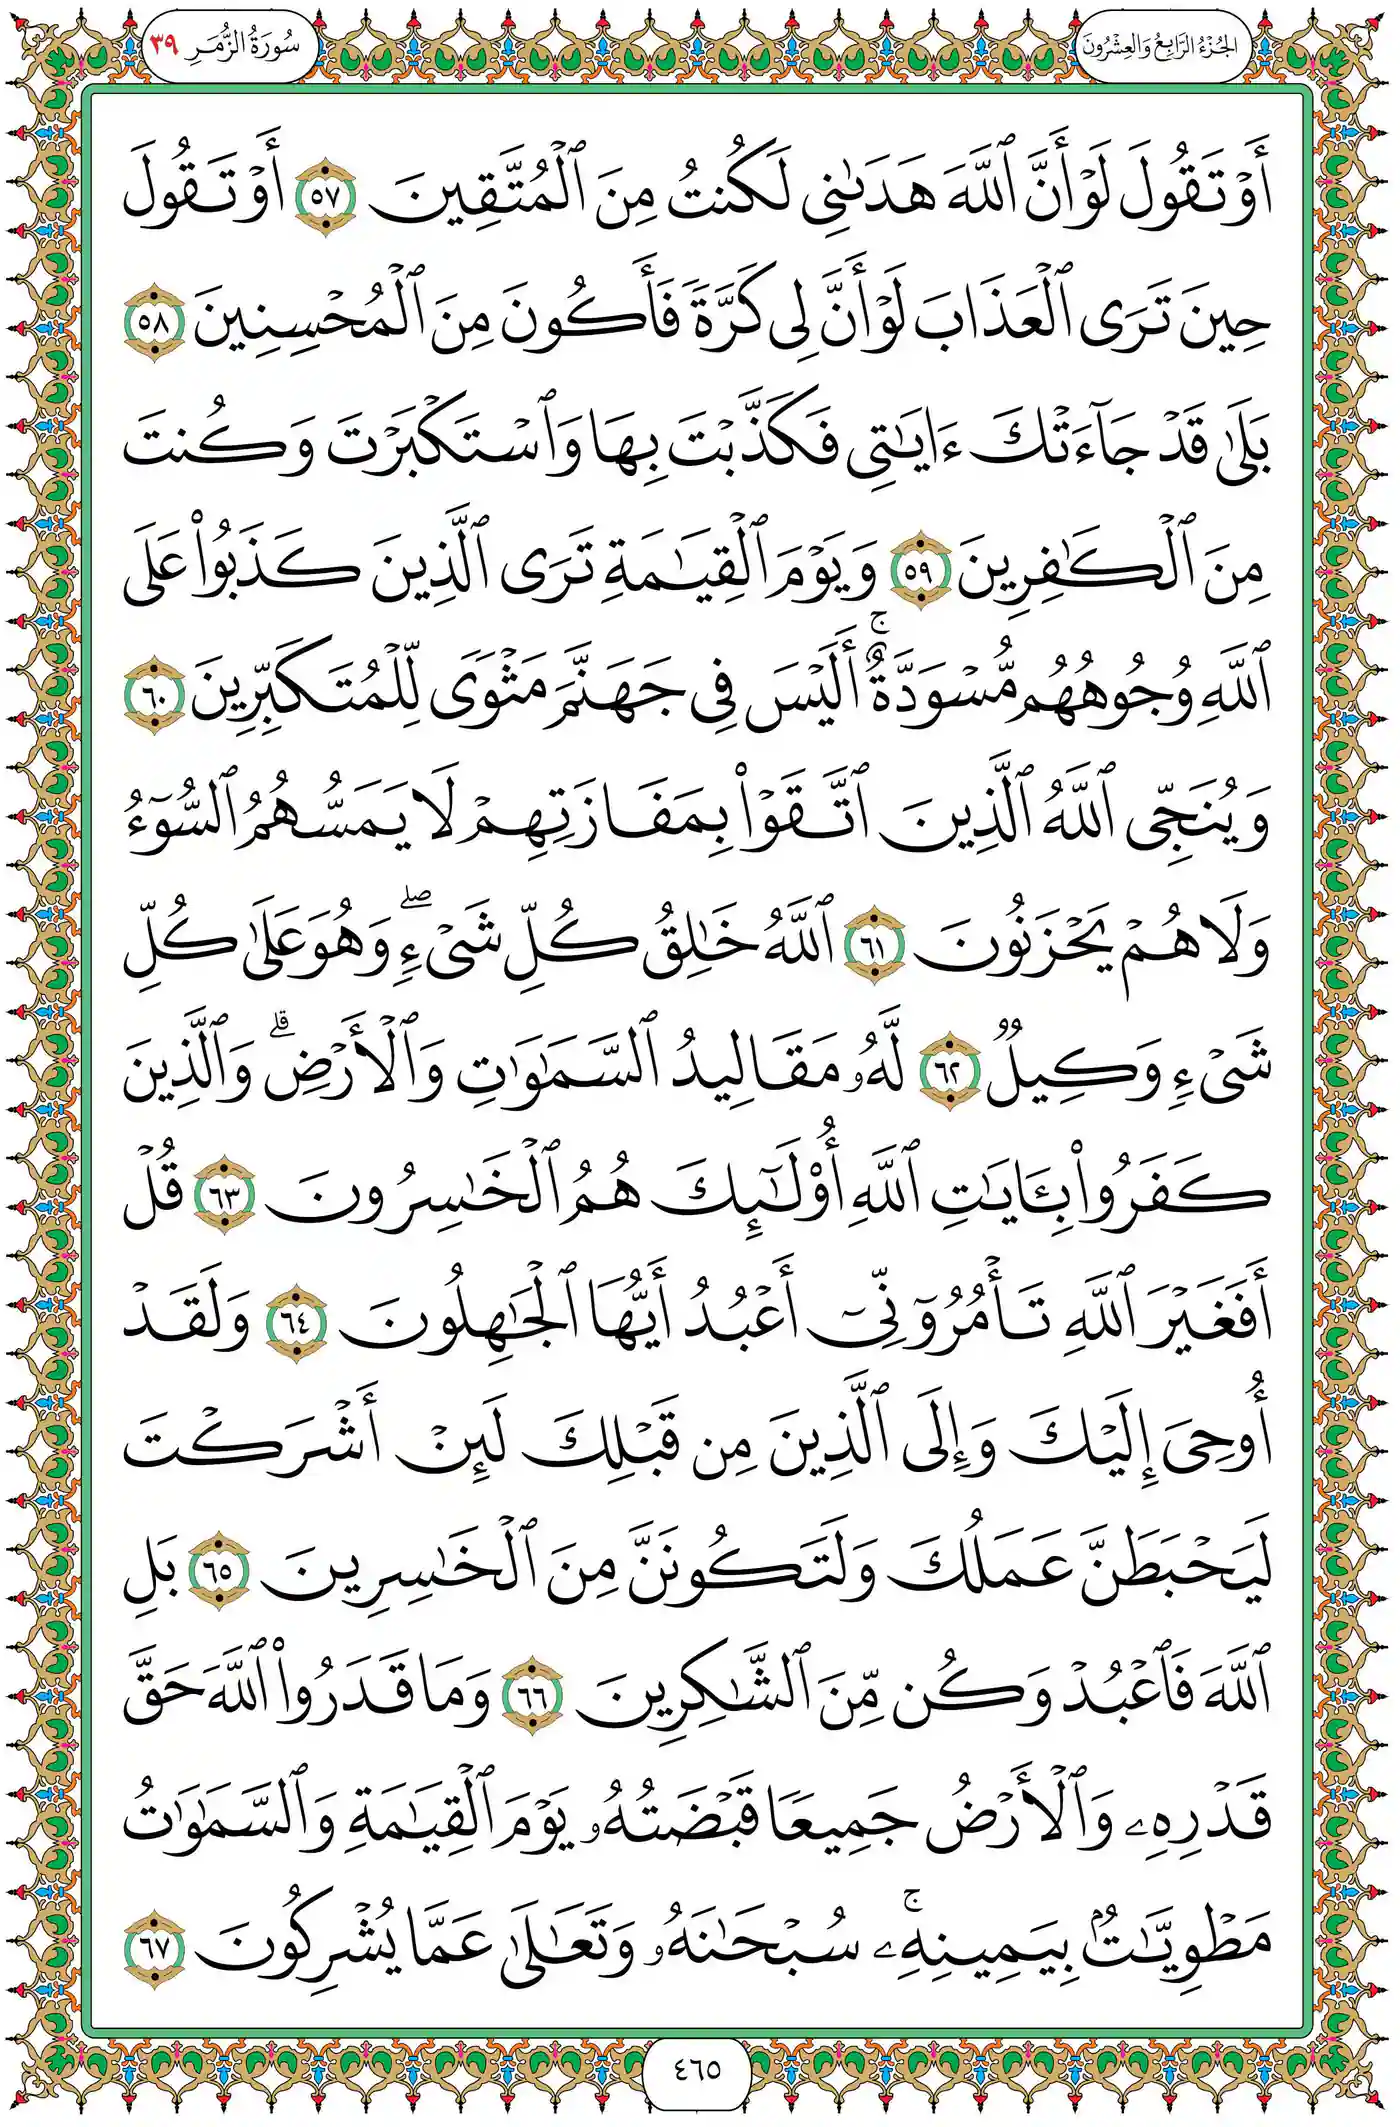 الجُزْءُ الرَّابِعُ وَالعِشْرُونَ
سُورَةُ الزُّمَرِ ٣٩
أَوۡ تَقُولَ لَوۡ أَنَّ ٱللَّهَ هَدَىٰنِي لَكُنتُ مِنَ ٱلۡمُتَّقِينَ ٥٧ أَوۡ تَقُولَ
حِينَ تَرَى ٱلۡعَذَابَ لَوۡ أَنَّ لِي كَرَّةٗ فَأَكُونَ مِنَ ٱلۡمُحۡسِنِينَ ٥٨
بَلَىٰ قَدۡ جَآءَتۡكَ ءَايَٰتِي فَكَذَّبۡتَ بِهَا وَٱسۡتَكۡبَرۡتَ وَكُنتَ
مِنَ ٱلۡكَٰفِرِينَ ٥٩ وَيَوۡمَ ٱلۡقِيَٰمَةِ تَرَى ٱلَّذِينَ كَذَبُواْ عَلَى
ٱللَّهِ وُجُوهُهُم مُّسۡوَدَّةٌۚ أَلَيۡسَ فِي جَهَنَّمَ مَثۡوٗى لِّلۡمُتَكَبِّرِينَ ٦٠
وَيُنَجِّي ٱللَّهُ ٱلَّذِينَ ٱتَّقَوۡاْ بِمَفَازَتِهِمۡ لَا يَمَسُّهُمُ ٱلسُّوٓءُ
وَلَا هُمۡ يَحۡزَنُونَ ٦١ ٱللَّهُ خَٰلِقُ كُلِّ شَيۡءٖۖ وَهُوَ عَلَىٰ كُلِّ
شَيۡءٖ وَكِيلٞ ٦٢ لَّهُۥ مَقَالِيدُ ٱلسَّمَٰوَٰتِ وَٱلۡأَرۡضِۗ وَٱلَّذِينَ
كَفَرُواْ بِـَٔايَٰتِ ٱللَّهِ أُوْلَٰٓئِكَ هُمُ ٱلۡخَٰسِرُونَ ٦٣ قُلۡ
أَفَغَيۡرَ ٱللَّهِ تَأۡمُرُوٓنِّيٓ أَعۡبُدُ أَيُّهَا ٱلۡجَٰهِلُونَ ٦٤ وَلَقَدۡ
أُوحِيَ إِلَيۡكَ وَإِلَى ٱلَّذِينَ مِن قَبۡلِكَ لَئِنۡ أَشۡرَكۡتَ
لَيَحۡبَطَنَّ عَمَلُكَ وَلَتَكُونَنَّ مِنَ ٱلۡخَٰسِرِينَ ٦٥ بَلِ
ٱللَّهَ فَٱعۡبُدۡ وَكُن مِّنَ ٱلشَّٰكِرِينَ ٦٦ وَمَا قَدَرُواْ ٱللَّهَ حَقَّ
قَدۡرِهِۦ وَٱلۡأَرۡضُ جَمِيعٗا قَبۡضَتُهُۥ يَوۡمَ ٱلۡقِيَٰمَةِ وَٱلسَّمَٰوَٰتُ
مَطۡوِيَّٰتُۢ بِيَمِينِهِۦۚ سُبۡحَٰنَهُۥ وَتَعَٰلَىٰ عَمَّا يُشۡرِكُونَ ٦٧
٤٦٥